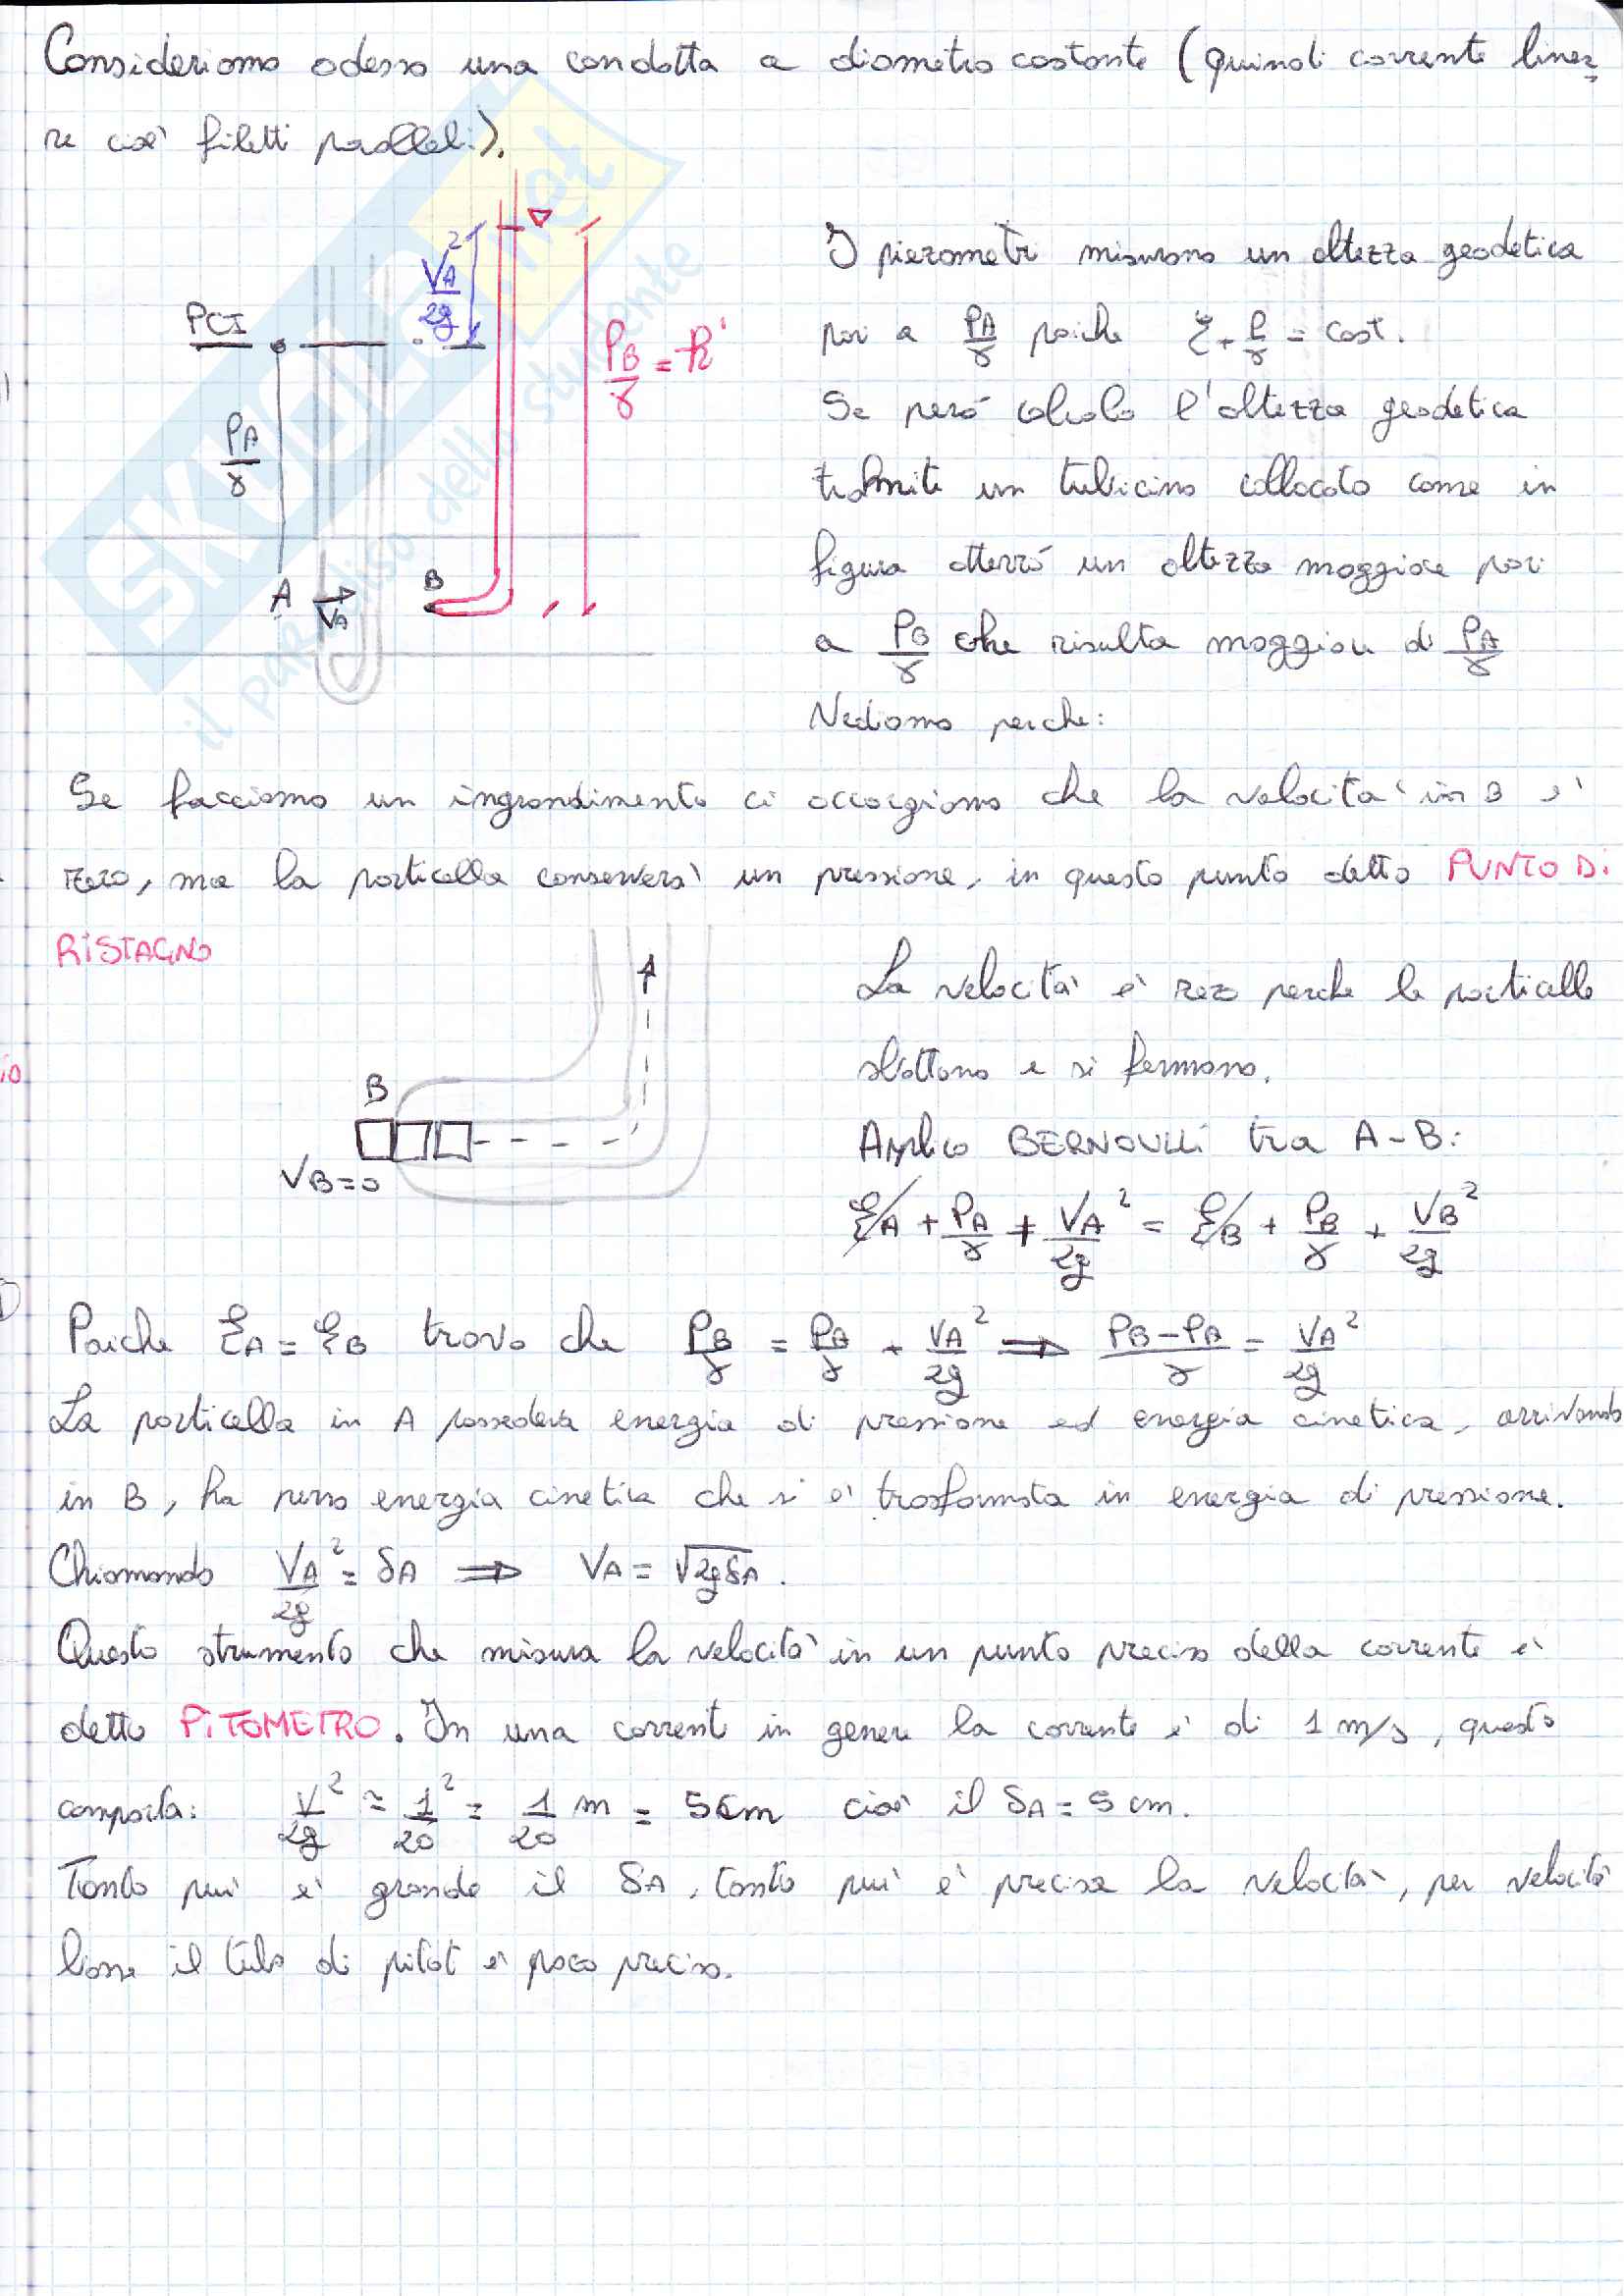 Consideriamo adesso una condotta a diametro costante (quindi corrente linea
re cioè filetti paralleli).
PCI
VA²/2g
PB/γ = h'
PA/γ
A
VA
B
I piezometri misurano un altezza geodetica
pari a PA/γ poiche ξ + P/γ = cost.
Se però calcolo l'altezza geodetica
tramite un tubicino collocato come in
figura otterrò un altezza maggiore pari
a PB/γ che risulta maggiore di PA/γ
Vediamo perche:
Se facciamo un ingrandimento ci accorgiamo che la velocita' in B e'
zero, ma la particella conserverà un pressione, in questo punto detto PUNTO Di
RiSTAGNO
B
VB=0
La velocità è zero perche le particelle
sbattono e si fermano.
Applico BERNOULLi tra A-B:
ξA + PA/γ + VA²/2g = ξB + PB/γ + VB²/2g
Poiche ξA = ξB trovo che PB/γ = PA/γ + VA²/2g ⟹ PB-PA/γ = VA²/2g
La particella in A possedeva energia di pressione ed energia cinetica, arrivando
in B, ha perso energia cinetica che si e' trasformata in energia di pressione.
Chiamando VA²/2g = δA ⟹ VA = √2gδA.
Questo strumento che misura la velocità in un punto preciso della corrente e'
detto PiTOMETRO. In una corrente in genere la corrente e' di 1 m/s, questo
comporta: V²/2g ≈ 1²/20 = 1/20 m = 5cm cioè il δA = 5 cm.
Tanto piu' e' grande il δA, tanto piu' e' precisa la velocità, per velocità
basse il tubo di pitot e' poco preciso.
SKUOLA.net
il paradiso dello studente